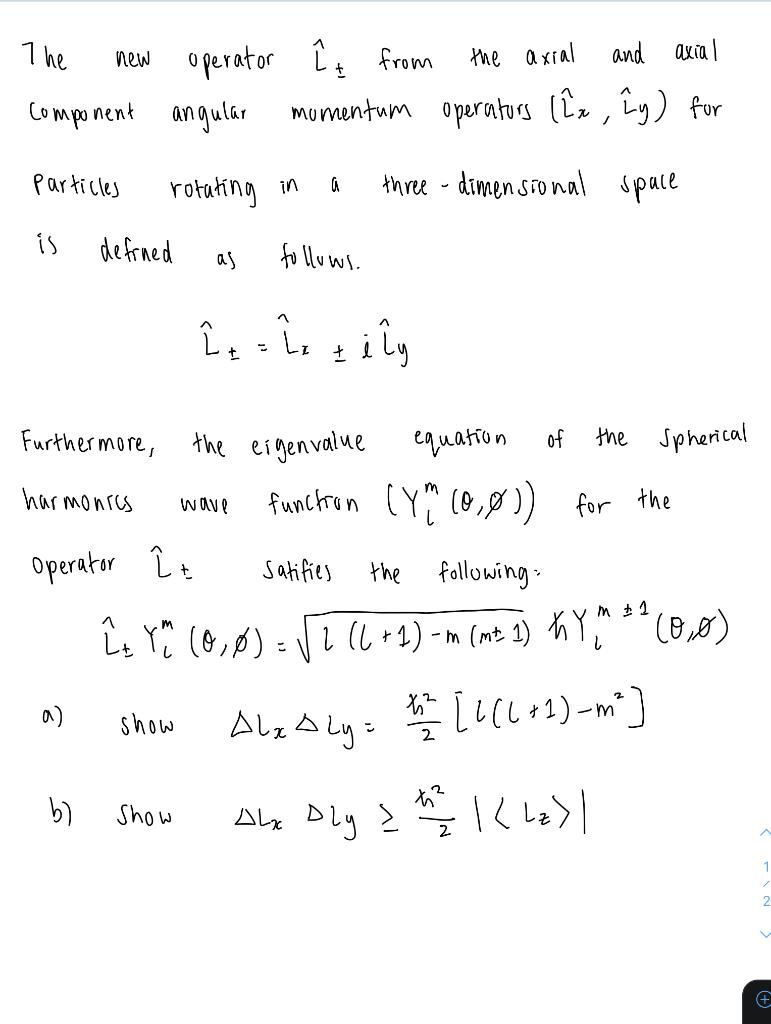 The new operator L̂± from the axial and axial
Component angular momentum operators (L̂x , L̂y) for
Particles rotating in a three - dimensional space
is defined as follows.
L̂± = L̂x ± i L̂y
Furthermore, the eigenvalue equation of the spherical
harmonics wave function (Yₗᵐ (θ,ø)) for the
operator L̂± satifies the following:
L̂± Yₗᵐ (θ,ø) = √(l (l +1) - m (m± 1)) ħYₗᵐ ±¹ (θ,ø)
a) show ΔLx ΔLy = ħ²/2 [l(l+1) - m²]
b) show ΔLx ΔLy ≥ ħ²/2 |< Lz>|
1
/
2